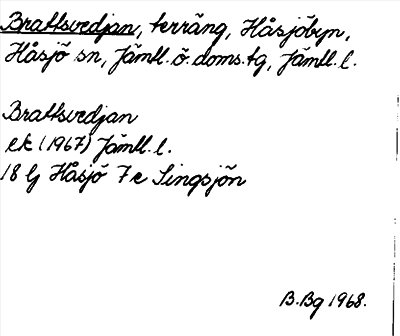 Brattsvedjan, terräng, Håsjöbyn,
Håsjö sn, Jämtl. ö. doms.tg, Jämtl. l.
Brattsvedjan
ek (1967) Jämtl. l.
18 G Håsjö 7 e Singsjön
B.Bg 1968.